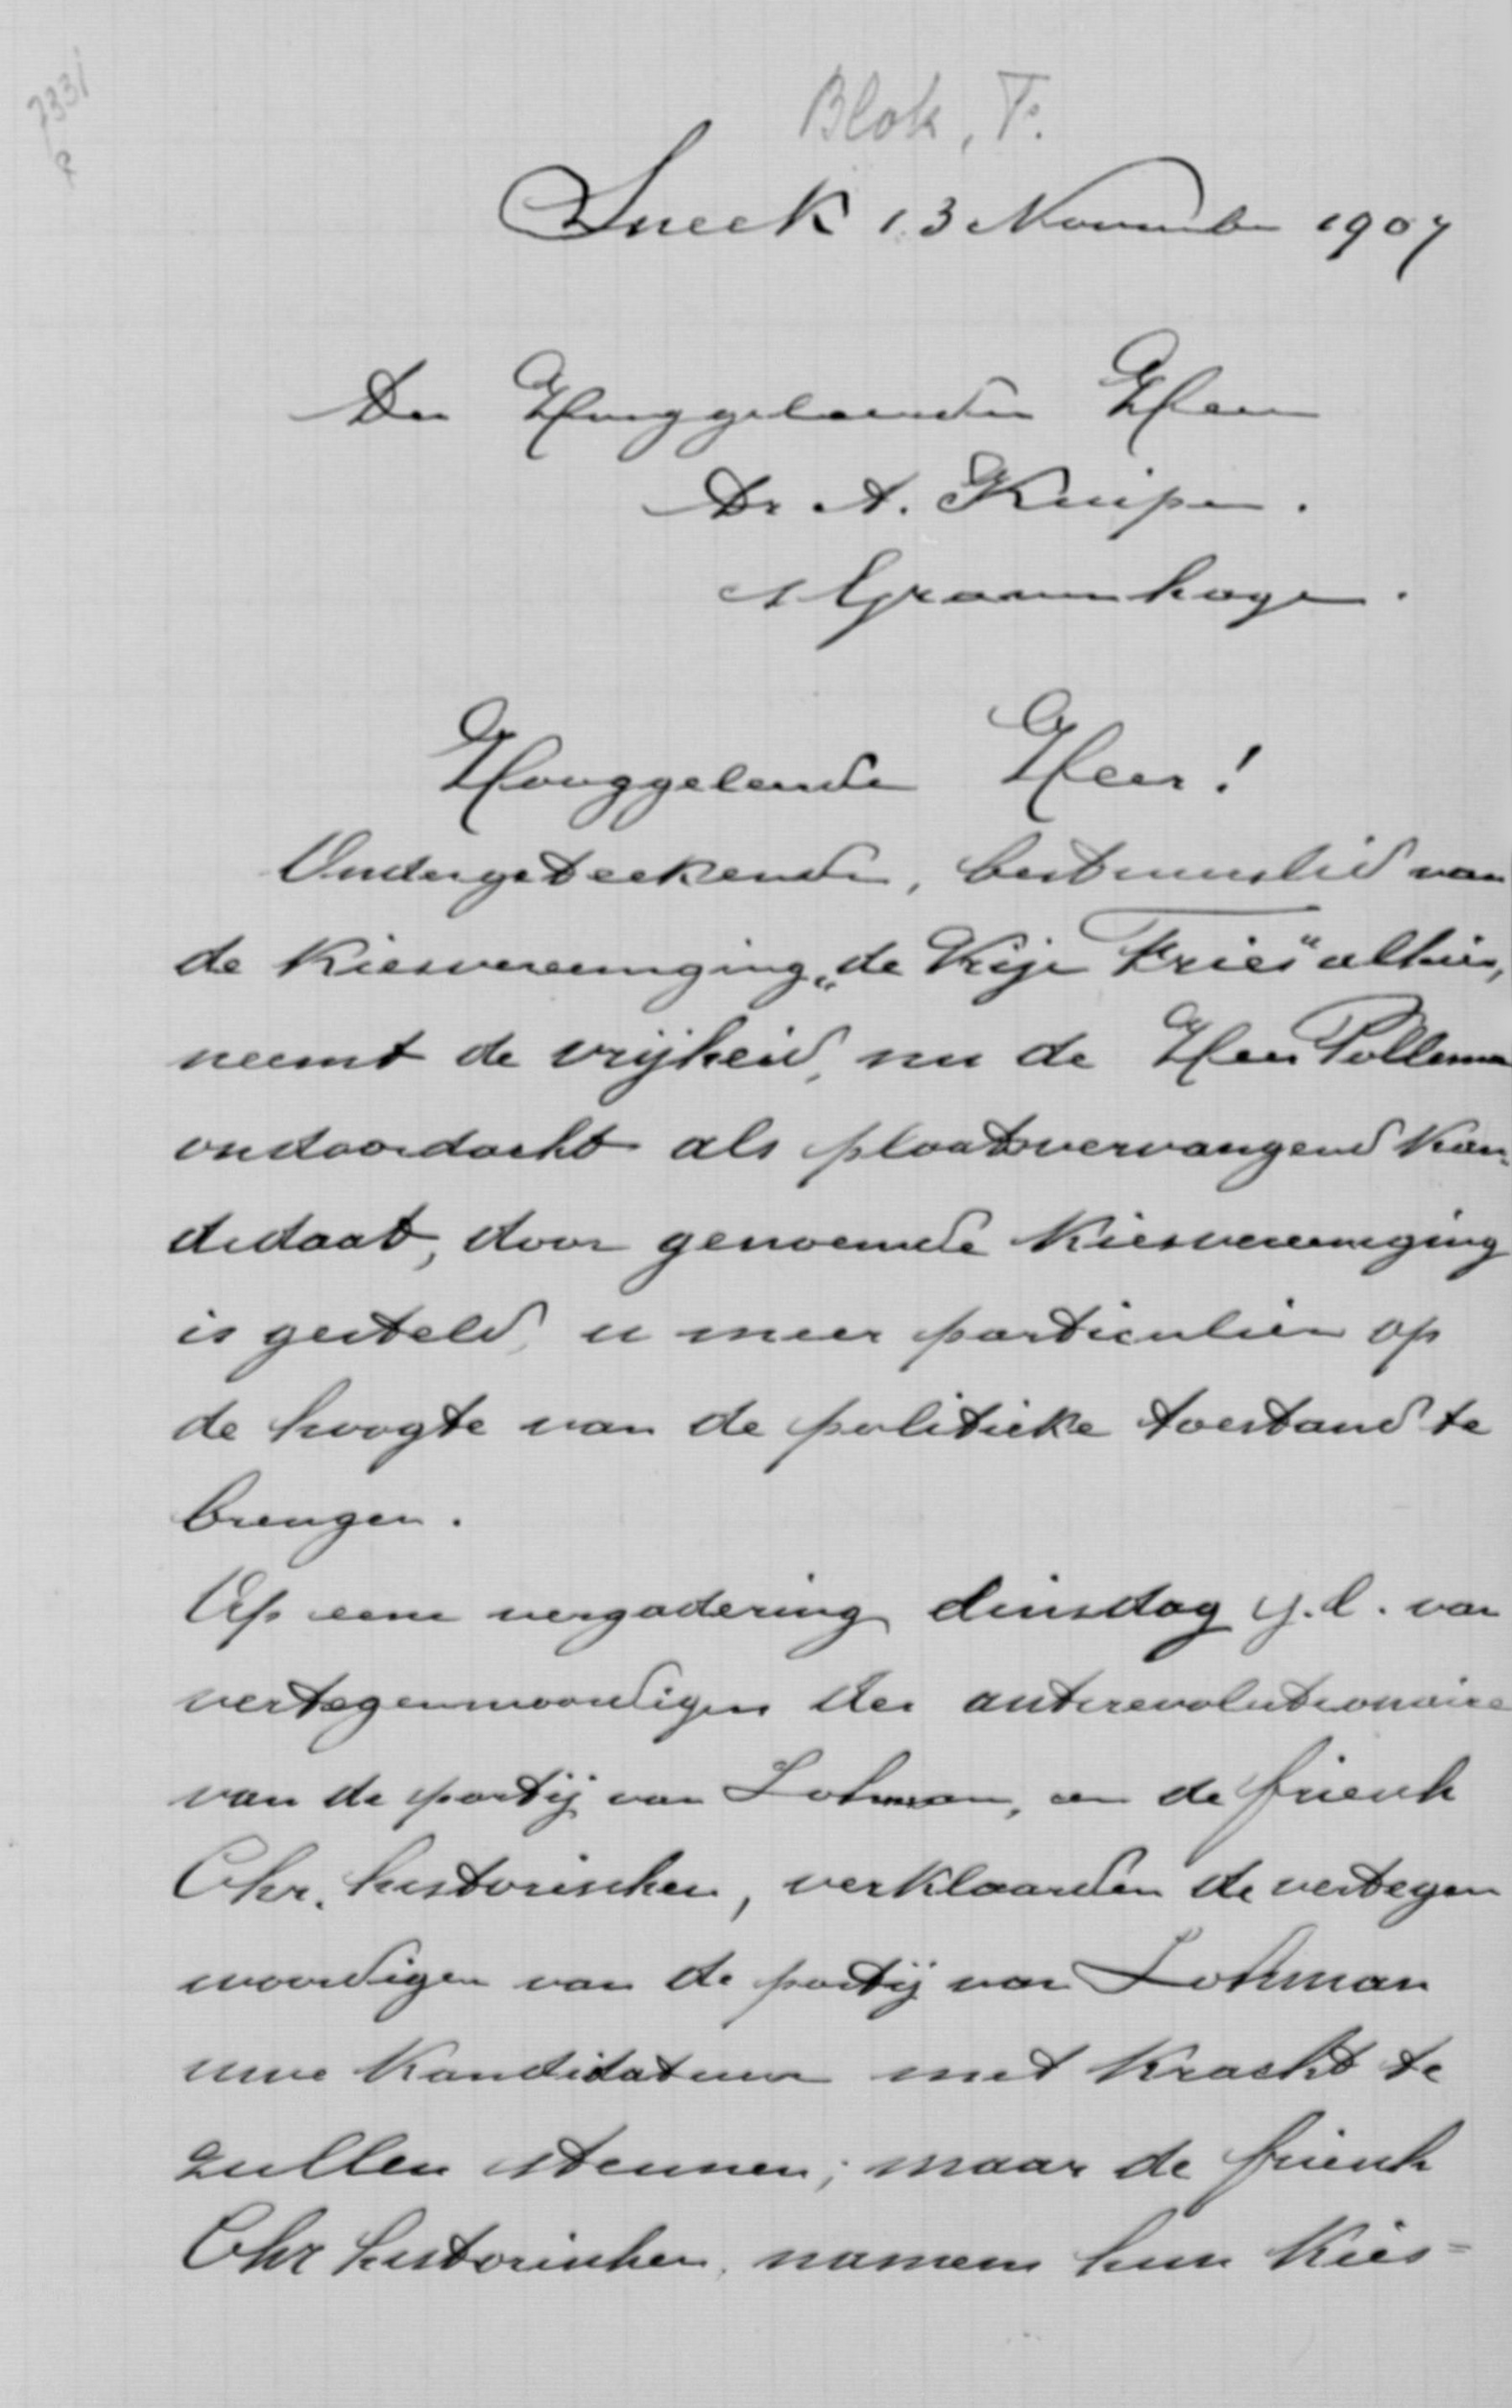 7331
Blok, T.
Sneek 13 November 1907
Den Hooggeleerden Heer
Dr A. Kuiper.
s Gravenhage.
Hooggeleerde Heer!
Ondergeteekende, bestuurslid van
de Kiesvereeniging „de Vrije Fries" alhier,
neemt de vrijheid, nu de Heer Pollema
ondoordacht als plaatsvervangend kan-
didaat, door genoemde Kiesvereeniging
is gesteld, u meer particulier op
de hoogte van de politieke toestand te
brengen.
Op eene vergadering dinsdag j.l. van
vertegenwoordigers der antirevolutionaire
van de partij van Lohman, en de friesch
Chr. historischen, verklaarden de vertegen
woordigers van de partij van Lohman
uwe Kandidatuur met kracht te
zullen steunen; maar de friesch
Chr historischen, namens hun Kies=